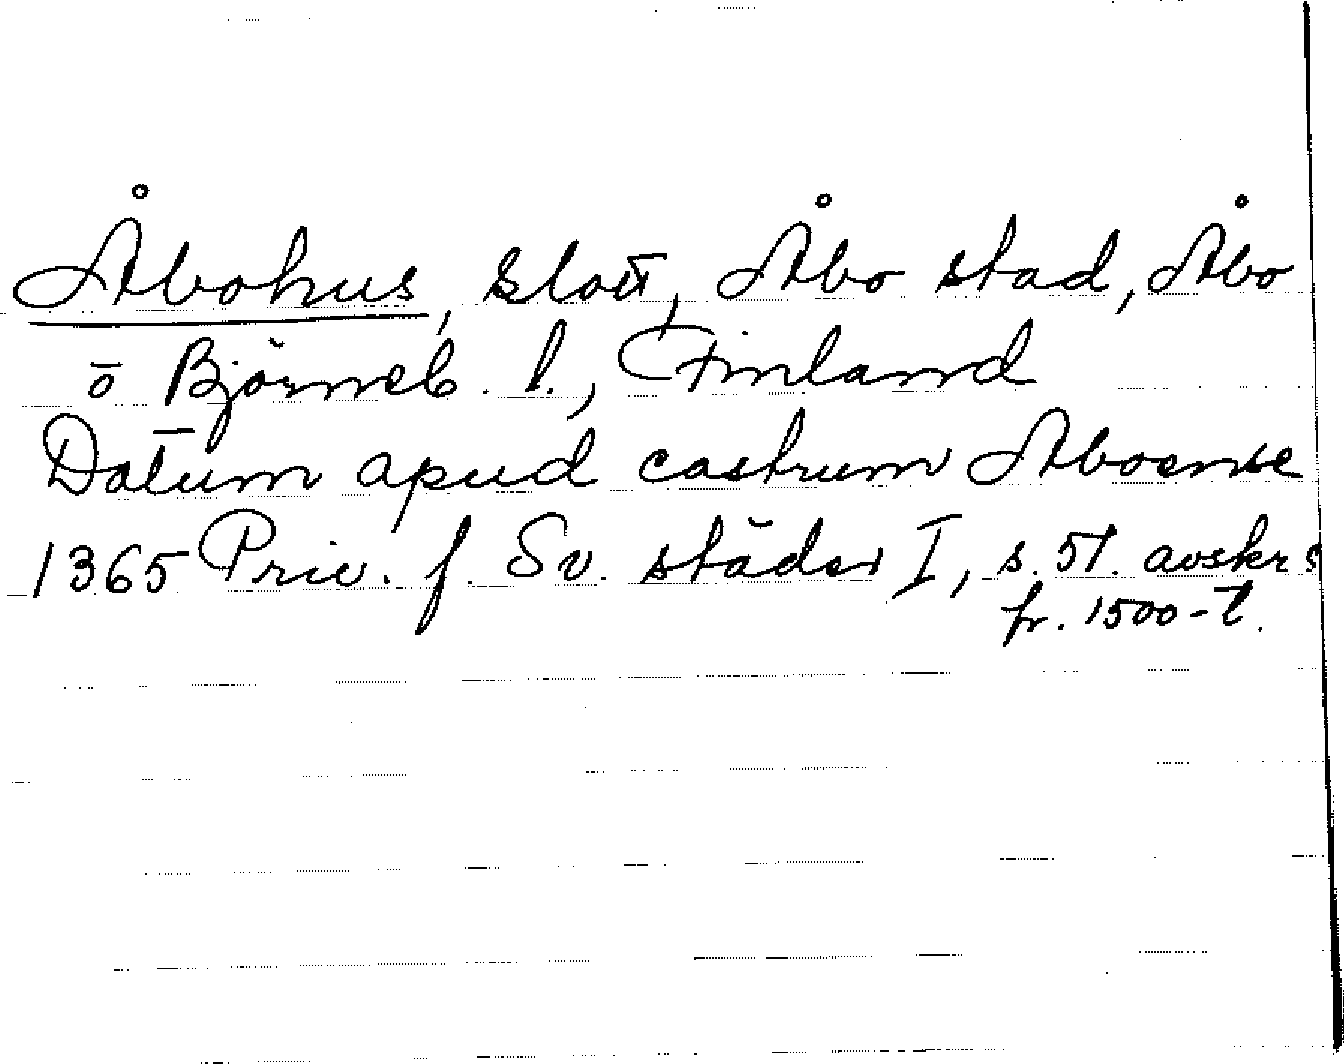 Åbohus, slott, Åbo stad, Åbo
o Björneb. l., Finland
Datum apud castrum Aboense
1365 Priv. f. Sv. städer I, s. 51. avskr
fr. 1500-t.